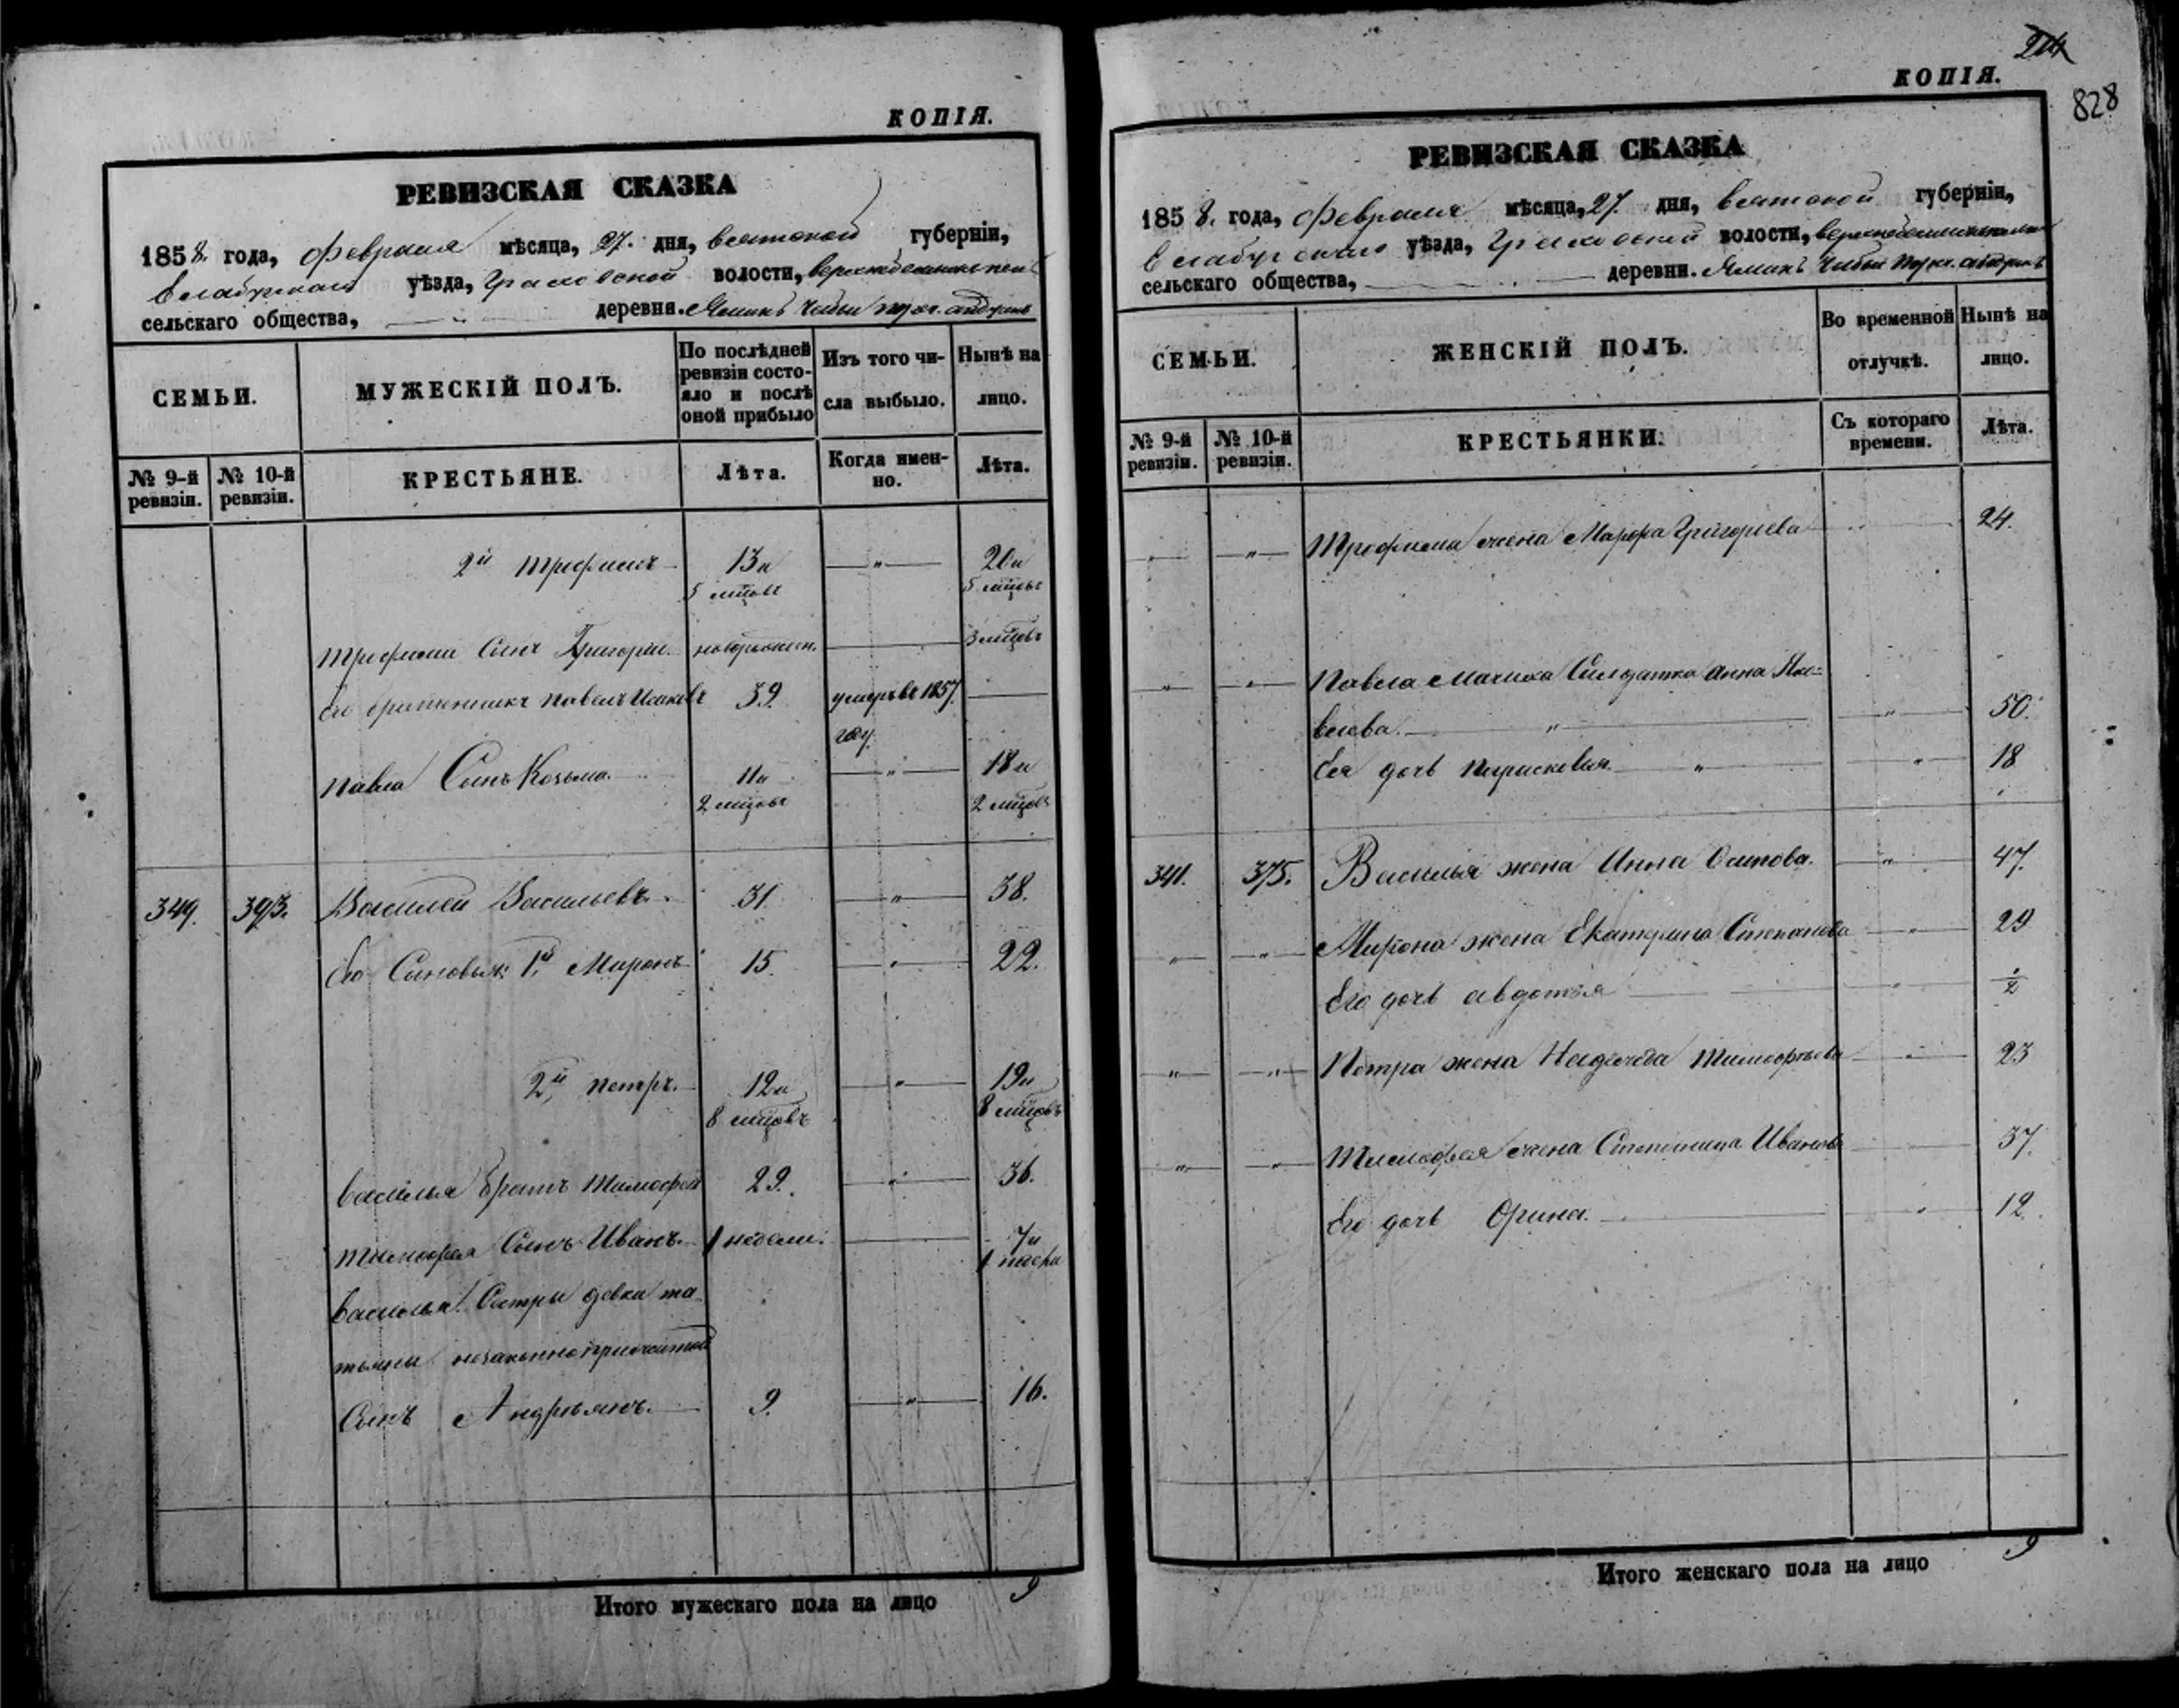 КОПІЯ.
РЕВИЗСКАЯ СКАЗКА
1858. года, февраля мѣсяца, 27. дня, вятской губерніи,
Елабужскаго уѣзда, Граховской волости,
сельскаго общества, деревни.
СЕМЬИ.
МУЖЕСКІЙ ПОЛЪ.
По послѣдней ревизіи состояло и послѣ оной прибыло
Изъ того числа выбыло.
Нынѣ на лицо.
№ 9-й ревизіи.
№ 10-й ревизіи.
КРЕСТЬЯНЕ.
Лѣта.
Когда именно.
Лѣта.
2й Трофимъ 13 и — " — 20 и
5 мцовъ 5 мцовъ
Трофима Сынъ Григорій. новорожден. — 3 мцовъ
Его Павелъ Исаковъ 39. умеръ въ 1857. —
году.
Павла Сынъ Козьма. 11 и — " — 18 и
2 мцовъ 2 мцовъ
349. 393. Василей Васильевъ. 31. — " — 38.
Его Сыновья: 1й Миронъ 15. — " — 22.
2й петръ. 12 и — " — 19 и
8 мцовъ 8 мцовъ
Василья братъ Тимофей 29. — " — 36.
Тимофея Сынъ Иванъ. 1 недели. — 7 и
1 нед.
Василья Сестры девки та-
тьяны незаконноприжитой
Сынъ Андреянъ. 9. — " — 16.
Итого мужескаго пола на лицо 9
204
КОПІЯ.
828
РЕВИЗСКАЯ СКАЗКА
1858. года, февраля мѣсяца, 27. дня, вятской губерніи,
Елабужскаго уѣзда, Граховской волости,
сельскаго общества, деревни.
СЕМЬИ.
ЖЕНСКІЙ ПОЛЪ.
Во временной отлучкѣ.
Нынѣ на лицо.
№ 9-й ревизіи.
№ 10-й ревизіи.
КРЕСТЬЯНКИ.
Съ котораго времени.
Лѣта.
— " — — " — Трофима жена Марфа Григорьева — 24.
— " — — " — Павла Мачиха Солдатка Анна Яко=
влева. — " — — " — 50.
Ея дочь Парасковья — " — — " — 18
341. 375. Василья жена Анна Осипова. — " — 47.
— " — — " — Мирона жена Екатерина Степанова — " — 29
Его дочь авдотья — " —
— " — — " — Петра жена Надежда Тимофеева — " — 23
— " — — " — Тимофея жена Степанида Иванова — 37.
Его дочь Орина. — " — 12.
Итого женскаго пола на лицо 9